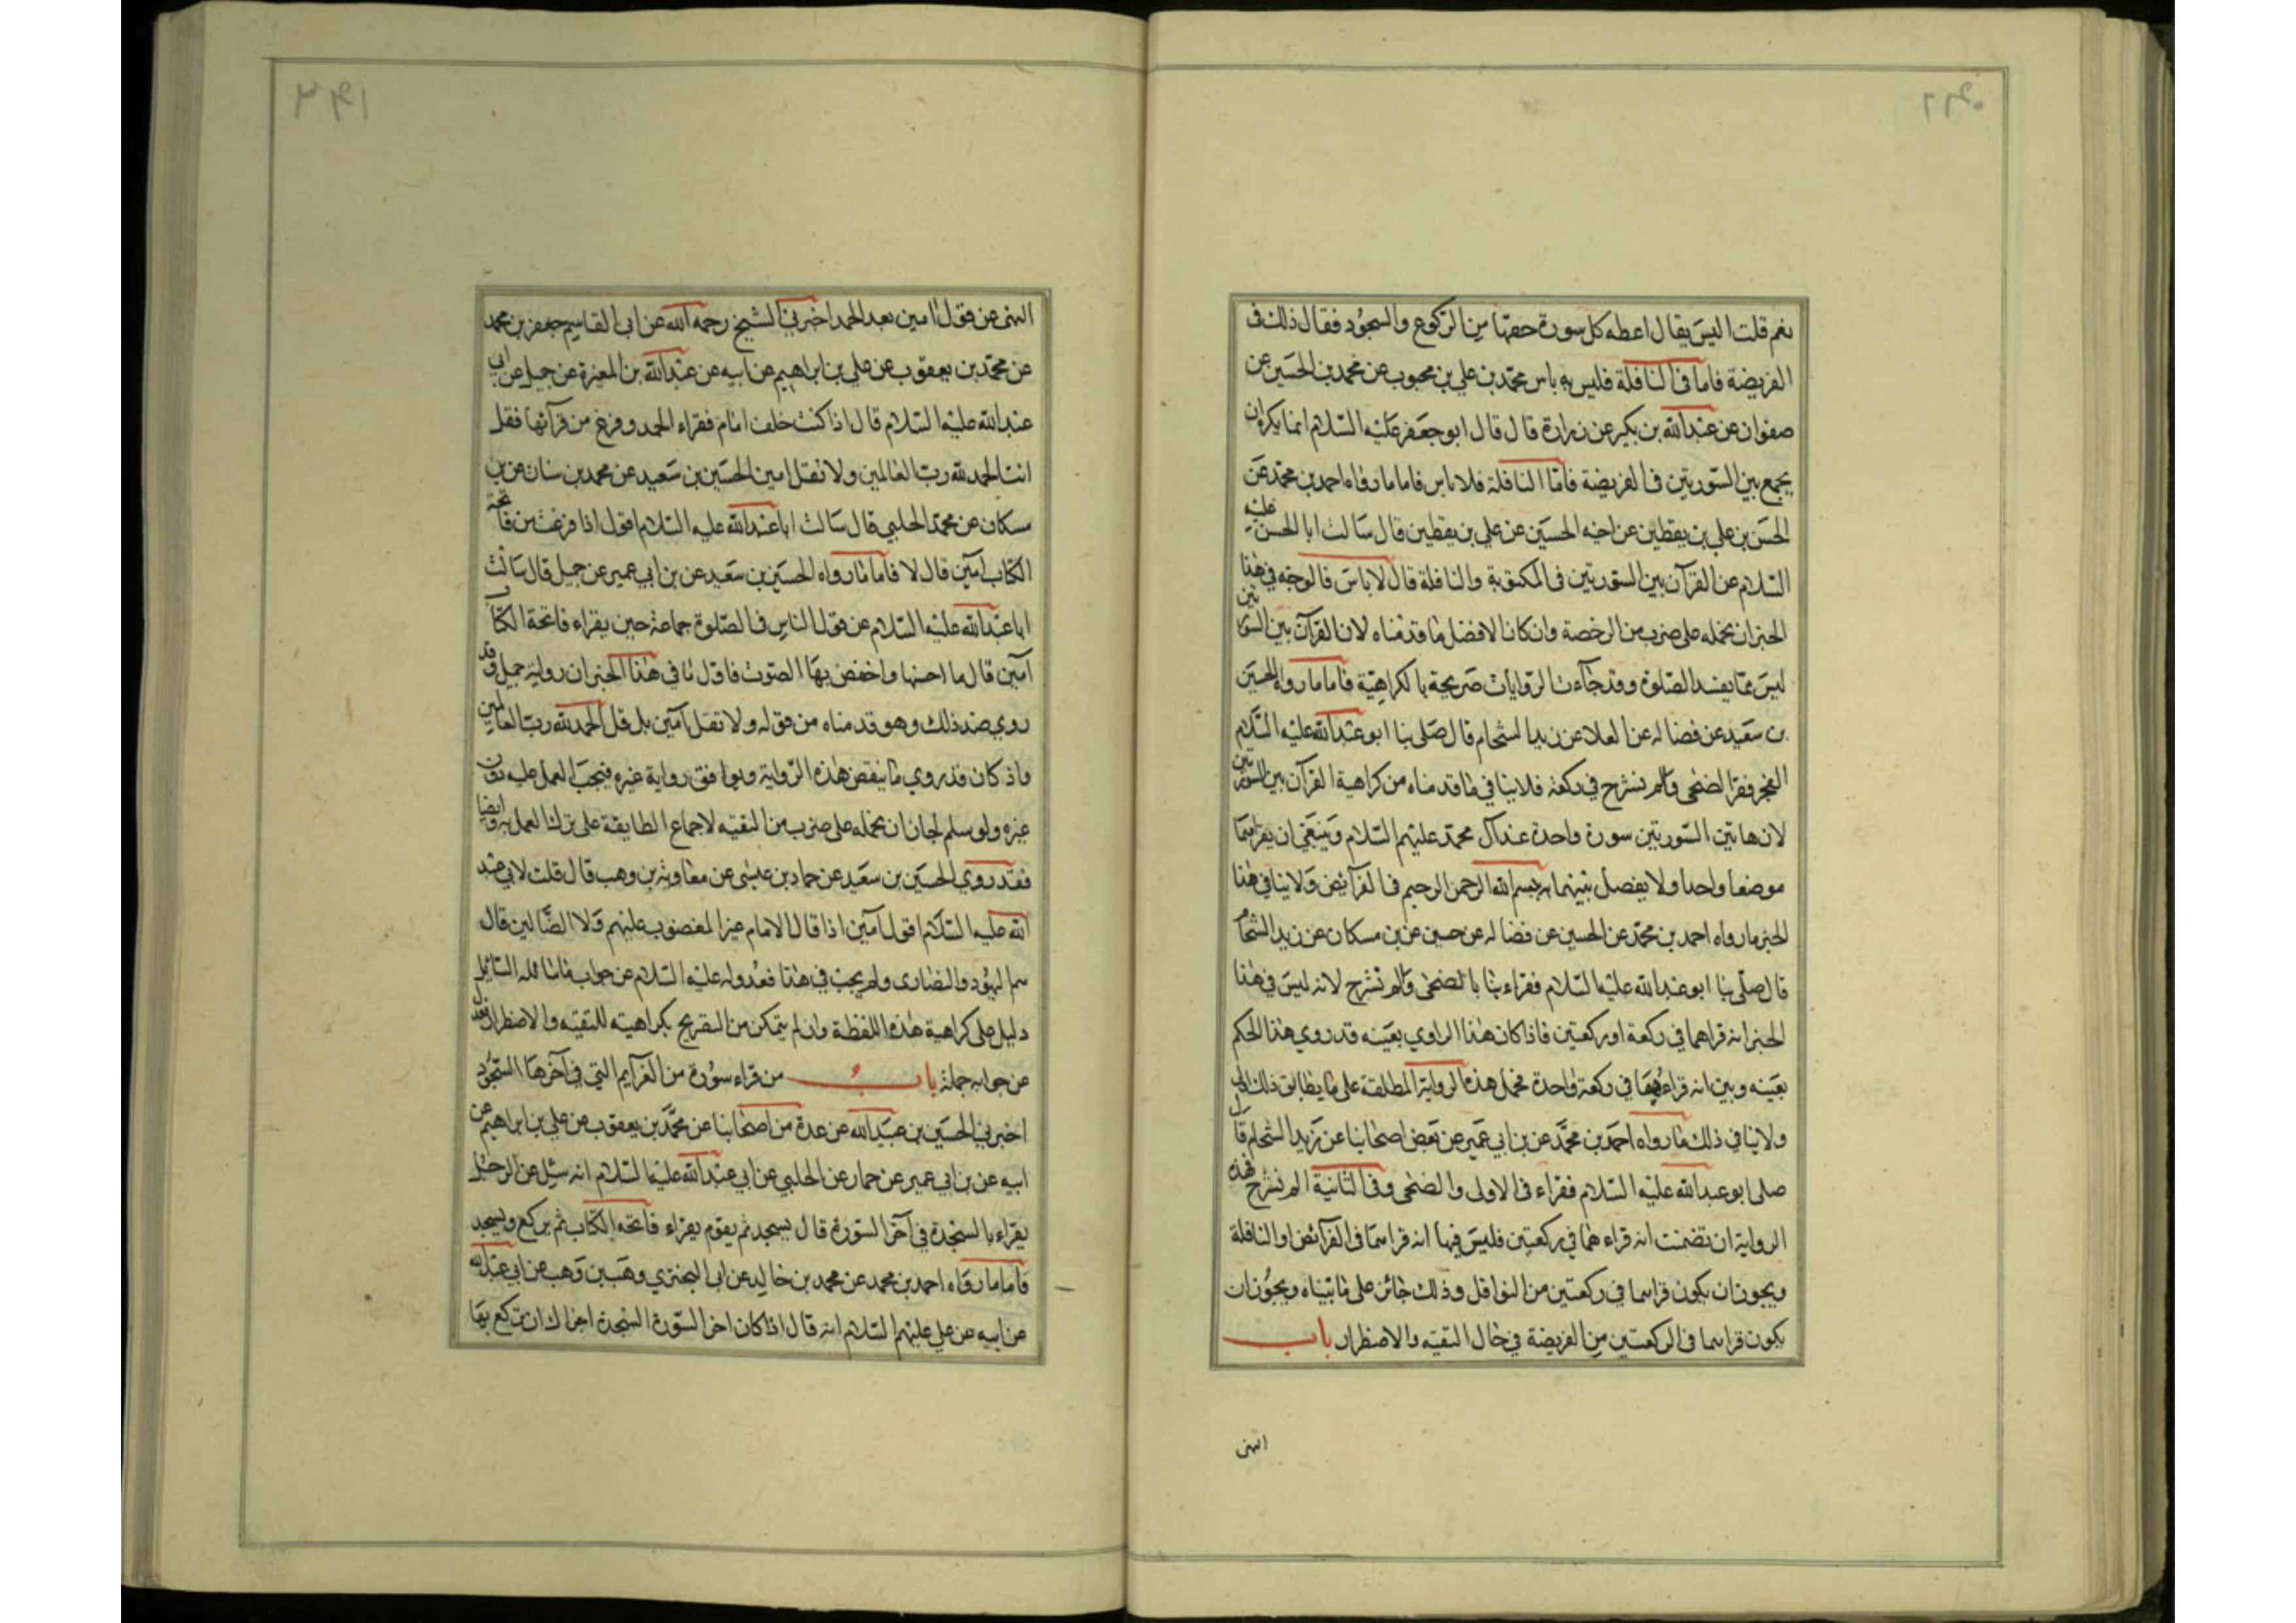 نعم قلت اليس يقال اعطه كل سورة حقها من الركوع والسجود فقال ذلك فى
الفريضة فاما فى النافلة فليس به باس محمد بن علي بن محبوب عن محمد بن الحسين عن
صفوان عن عبدالله بن بكير عن زرارة قال قال ابو جعفر عليه السلام انما يكره ان
يجمع بين السورتين فى الفريضة فامّا النافلة فلا باس فاما ما رواه احمد بن محمّد عن
الحسن بن علي بن يقطين عن اخيه الحسين عن علي بن يقطين قال سالت ابا الحسن عليه
السلام عن القرآن بين السورتين فى المكتوبة والنافلة قال لا باس فالوجه في هذا
الخبر ان نحمله على ضرب من الرخصة وان كان الافضل ما قدمناه لان القرآن بين السورتين
ليس ممّا يفسد الصلوة وقد جاءت الروايات صريحة بالكراهيّة فاما ما رواه الحسين
بن سعيد عن فضاله عن العلا عن زيد الشحام قال صلى بنا ابو عبدالله عليه السلام
الفجر فقرا الضحى والم نشرح في ركعة فلا ينافي ما قدمناه من كراهية القرآن بين السورتين
لان هاتين السورتين سورة واحدة عند آل محمّد عليهم السلام وينبغي ان يقراهما
موضعا واحدا ولا يفصل بينهما ببسم الله الرحمن الرحيم فى الفرآيض ولا ينافي هذا
الخبر ما رواه احمد بن محمّد عن الحسين عن فضاله عن حسين عن بن مسكان عن زيد الشحام
قال صلّى بنا ابو عبدالله عليه السلام فقراء بنا بالضحى والم نشرح لانه ليس في هذا
الخبر انه قراهما في ركعة او ركعتين فاذا كان هذا الراوي بعينه قدروي هذا الحكم
بعينه وبين انه قراءهما في ركعة واحدة فحمل هذه الرواية المطلقة على ما يطابق ذلك اولى
ولا ينافي ذلك ما رواه احمد بن محمّد عن بن ابي عمير عن بعض اصحابنا عن زيد الشحام قال
صلى ابو عبدالله عليه السلام فقراء فى الاولى والضحى وفى الثانية الم نشرح فهذه
الرواية ان تضمنت انه قراءهما في ركعتين فليس فيها انه قراهما فى الفرآئض او النافلة
ويجوز ان يكون قراهما في ركعتين من النوافل وذلك جائز على ما بيناه ويجوز ان
يكون قراهما فى الركعتين من الفريضة في حال التقيّه والاضطرار باب
النهى
النهى عن قول امين بعد الحمد اخبرني الشيخ رحمه الله عن ابى القاسم جعفر بن محمد
عن محمّد بن يعقوب عن علي بن ابراهيم عن ابيه عن عبدالله بن المغيرة عن جميل عن ابي
عبدالله عليه السلام قال اذا كنت خلف امام فقراء الحمد وفرغ من قرآئتها فقل
انت الحمد لله ربّ العالمين ولا تقل امين الحسين بن سعيد عن محمد بن سنان عن بن
مسكان عن محمّد الحلبي قال سالت ابا عبدالله عليه السلام اقول اذا فرغت من فاتحة
الكتاب آمين قال لا فاما ما رواه الحسين بن سعيد عن بن ابي عمير عن جميل قال سالت
ابا عبدالله عليه السلام عن قول الناس فى الصّلوة جماعة حين يقراء فاتحة الكتاب
آمين قال ما احسنها واخفض بها الصوت فاول ما في هذا الخبر ان رواية جميل وقد
روي ضد ذلك وهو قدمناه من قوله ولا تقل آمين بل قل الحمد لله ربّ العالمين
واذ كان قدروي ما ينقض هذه الرواية ويوافق رواية غيره فيجب العمل عليه دون
غيره ولو سلم لجاز ان نحمله على ضرب من التقيه لاجماع الطايفة على ترك العمل به وايضا
فقد روي الحسين بن سعيد عن حماد بن عيسى عن معاوية بن وهب قال قلت لابي عبد
الله عليه السلام اقول آمين اذا قال الامام غير المغضوب عليهم ولا الضّالين قال
هم اليهود والنصارى ولم يجب في هذا فعدوله عليه السلام عن جواب ما ساله السائل
دليل على كراهية هذه اللفظة وان لم يتمكن من التصريح بكراهيته للتقيّه والاضطرار فعدل
عن جوابه جملة باب من قراء سورة من العزايم التي في آخرها السجود
اخبرني الحسين بن عبيدالله عن عدة من اصحابنا عن محمّد بن يعقوب عن علي بن ابراهيم عن
ابيه عن بن ابي عمير عن حماد عن الحلبي عن ابي عبدالله عليه السلام انه سئل عن الرجل
يقراء بالسجدة في آخر السورة قال يسجد ثم يقوم يقراء فاتحه الكتاب ثم يركع ويسجد
فاما ما رواه احمد بن محمد عن محمد بن خالد عن ابى البختري وهب بن وهب عن ابي عبدالله
عن ابيه عن علي عليهم السلام انه قال اذا كان اخر السورة السجدة اجزاك ان تركع بها